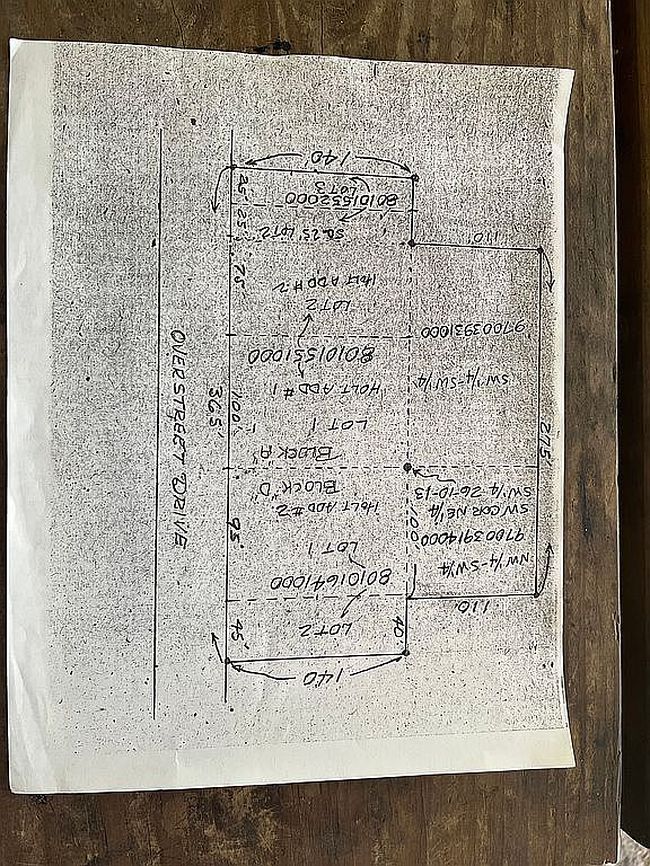 140
LOT 2
40'
45'
110
80101641000
LOT 1
HOLT ADD #2
BLOCK "D"
95'
NW 1/4-SW 1/4
97003914000
SW COR NE 1/4
SW 1/4 26-10-13
100'
BLOCK "A"
LOT 1
HOLT ADD #1
80101551000
100'
365'
OVERSTREET DRIVE
275'
SW 1/4-SW 1/4
97003931000
LOT 2
HOLT ADD #2
75'
110
SO. 25' LOT 2
25'
80101552000
LOT 3
25'
140'